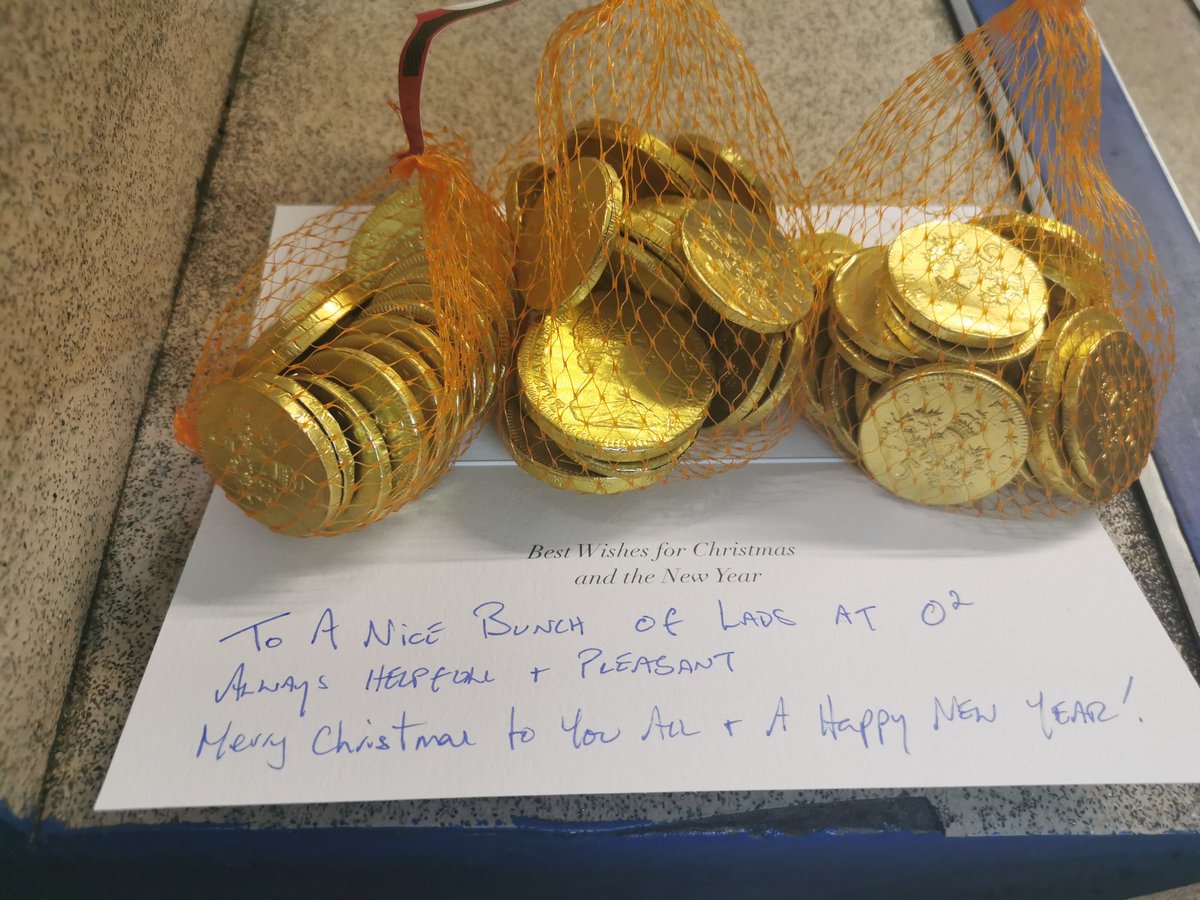 Best Wishes for Christmas
and the New Year
To A Nice Bunch of Lads at O²
Always Helpfull + Pleasant
Merry Christmas to You All + A Happy New Year!